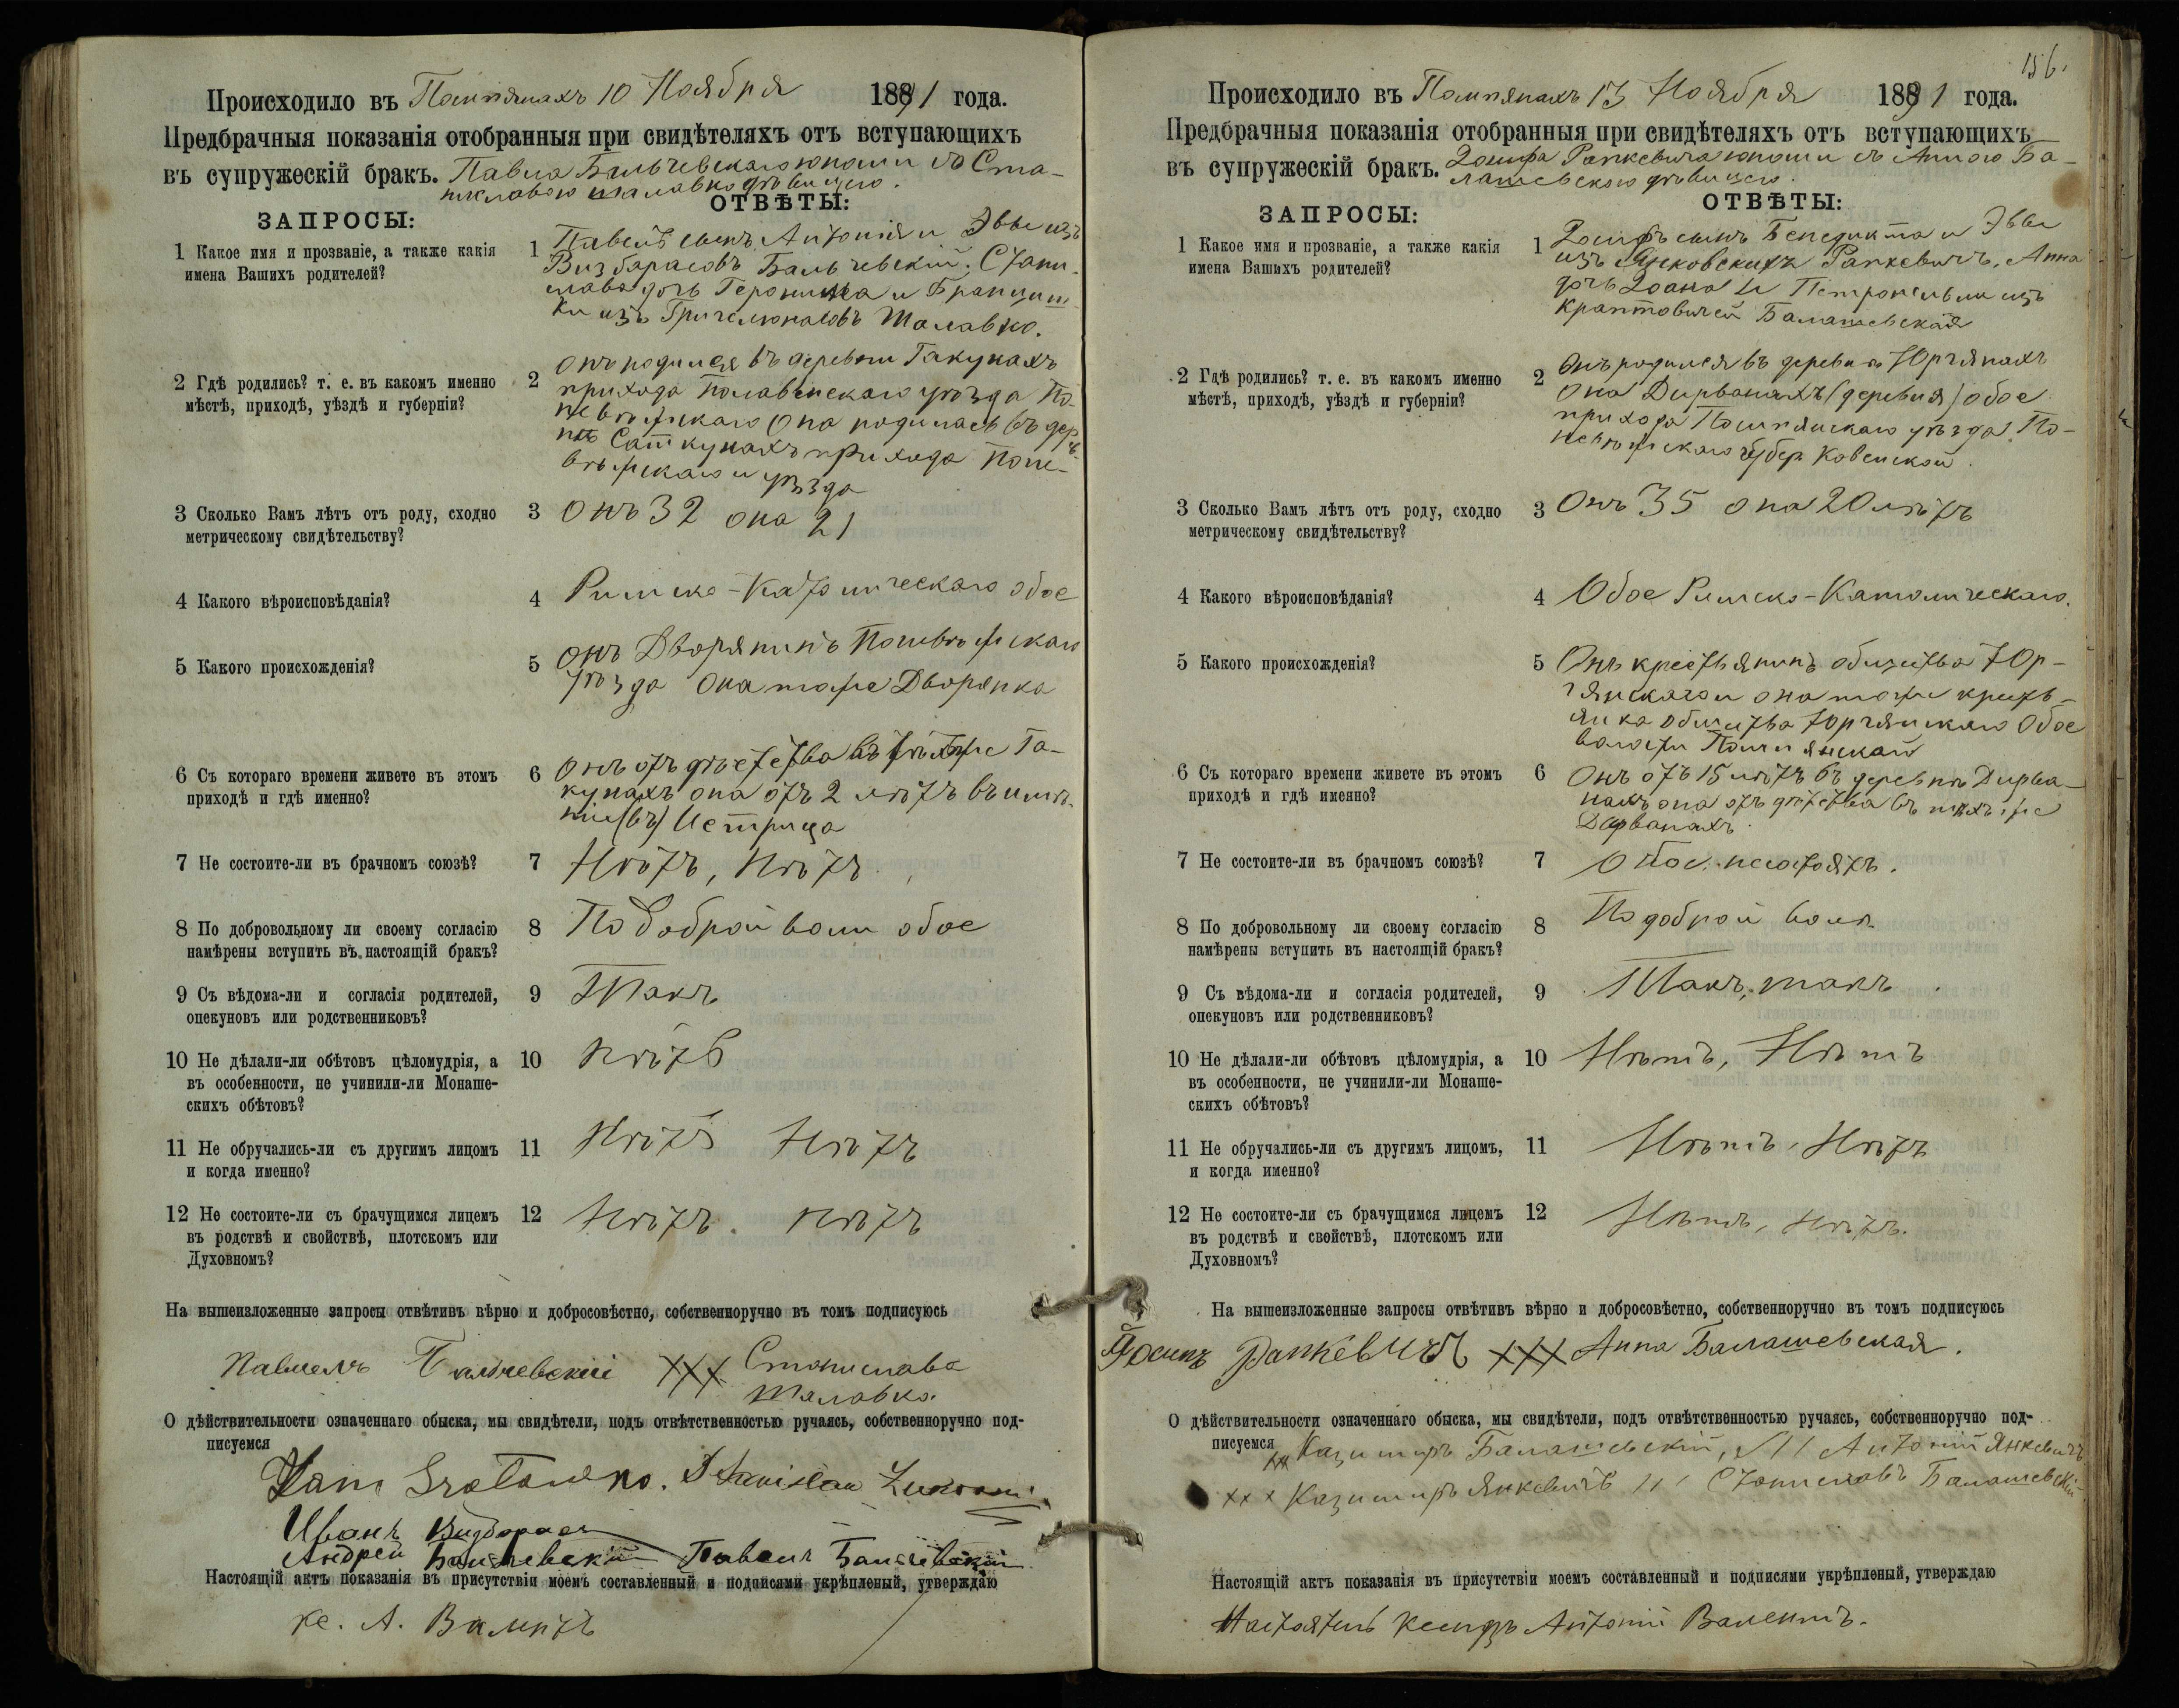 Происходило въ Помпянахъ 10 Ноября 1891 года.
Предбрачныя показанія отобранныя при свидѣтеляхъ отъ вступающихъ
въ супружескій бракъ. Павла Бальчевскаго юноши съ Ста-
ниславою Шалавко дѣвицею.
ЗАПРОСЫ:
ОТВѢТЫ:
1 Какое имя и прозваніе, а также какія
имена Вашихъ родителей?
1 Павелъ сынъ Антонія и Эвы изъ
Визбарасовъ Бальчевскій, Стани-
слава дочь Геронима и Францишки
изъ Шалавко.
2 Гдѣ родились? т. е. въ какомъ именно
мѣстѣ, приходѣ, уѣздѣ и губерніи?
2 Онъ родился въ деревни Гакунахъ
прихода уѣзда По-
невѣжскаго Она родилась въ дерев-
нѣ Саткунахъ прихода Поне-
вѣжскаго и уѣзда
3 Сколько Вамъ лѣтъ отъ роду, сходно
метрическому свидѣтельству?
3 Онъ 32 она 21
4 Какого вѣроисповѣданія?
4 Римско-Католическаго обое
5 Какого происхожденія?
5 Онъ Дворянинъ Поневѣжскаго
уѣзда Она тоже Дворянка
6 Съ котораго времени живете въ этомъ
приходѣ и гдѣ именно?
6 Онъ отъ дѣтства въ тѣхъ же Га-
кунахъ она отъ 2 лѣтъ въ имѣ-
ніи (въ) Истрица
7 Не состоите-ли въ брачномъ союзѣ?
7 Нѣтъ, Нѣтъ
8 По добровольному ли своему согласію
намѣрены вступить въ настоящій бракъ?
8 По доброй воли обое
9 Съ вѣдома-ли и согласія родителей,
опекуновъ или родственниковъ?
9 Такъ
10 Не дѣлали-ли обѣтовъ цѣломудрія, а
въ особенности, не учинили-ли Монаше-
скихъ обѣтовъ?
10 Нѣтъ
11 Не обручались-ли съ другимъ лицомъ
и когда именно?
11 Нѣтъ Нѣтъ
12 Не состоите-ли съ брачущимся лицемъ
въ родствѣ и свойствѣ, плотскомъ или
Духовномъ?
12 Нѣтъ. Нѣтъ
На вышеизложенные запросы отвѣтивъ вѣрно и добросовѣстно, собственноручно въ томъ подписуюсь
Бальчевскій ××× Станислава
Шалавко.
О дѣйствительности означеннаго обыска, мы свидѣтели, подъ отвѣтственностью ручаясь, собственноручно под-
писуемся
Stanisław
Иванъ Визбарасъ
Андрей Бальчевскій Павелъ Бальчевскій
Настоящій актъ показанія въ присутствіи моемъ составленный и подписями укрѣпленый, утверждаю
кс. А. Валентъ
156.
Происходило въ Помпянахъ 13 Ноября 1891 года.
Предбрачныя показанія отобранныя при свидѣтеляхъ отъ вступающихъ
въ супружескій бракъ. Іосифа Рапкевича юноши съ Анною Ба-
лашевскою дѣвицею.
ЗАПРОСЫ:
ОТВѢТЫ:
1 Какое имя и прозваніе, а также какія
имена Вашихъ родителей?
1 Іосифъ сынъ Бенедикта и Эвы
изъ Янковскихъ Рапкевичъ, Анна
дочь Іоана и Петронели изъ
Балашевская
2 Гдѣ родились? т. е. въ какомъ именно
мѣстѣ, приходѣ, уѣздѣ и губерніи?
2 Онъ родился въ деревнѣ Юргянахъ
Она Дирванахъ (деревня) обое
прихода Помпянскаго уѣзда По-
невѣжскаго Губер Ковенской.
3 Сколько Вамъ лѣтъ отъ роду, сходно
метрическому свидѣтельству?
3 Онъ 35 она 20 лѣтъ
4 Какого вѣроисповѣданія?
4 Обое Римско-Католическаго.
5 Какого происхожденія?
5 Онъ крестьянинъ общества Юр-
гянскаго и она тоже кресть-
янка общества Юргянскаго Обое
волости Помпянской
6 Съ котораго времени живете въ этомъ
приходѣ и гдѣ именно?
6 Онъ отъ 15 лѣтъ въ деревнѣ Дирва-
нахъ она отъ дѣтства въ тѣхъ же
Дирванахъ.
7 Не состоите-ли въ брачномъ союзѣ?
7 Обое несостоятъ.
8 По добровольному ли своему согласію
намѣрены вступить въ настоящій бракъ?
8 По доброй воли.
9 Съ вѣдома-ли и согласія родителей,
опекуновъ или родственниковъ?
9 Такъ, такъ
10 Не дѣлали-ли обѣтовъ цѣломудрія, а
въ особенности, не учинили-ли Монаше-
скихъ обѣтовъ?
10 Нѣтъ, Нѣтъ
11 Не обручались-ли съ другимъ лицомъ,
и когда именно?
11 Нѣтъ, Нѣтъ
12 Не состоите-ли съ брачущимся лицемъ
въ родствѣ и свойствѣ, плотскомъ или
Духовномъ?
12 Нѣтъ, Нѣтъ.
На вышеизложенные запросы отвѣтивъ вѣрно и добросовѣстно, собственноручно въ томъ подписуюсь
Рапкевичъ ××× Анна Балашевская.
О дѣйствительности означеннаго обыска, мы свидѣтели, подъ отвѣтственностью ручаясь, собственноручно под-
писуемся ××× Казимиръ Балашевскій, Антоній Янкевичъ
××× Казимиръ Янкевичъ Станиславъ Балашевскій
Настоящій актъ показанія въ присутствіи моемъ составленный и подписями укрѣпленый, утверждаю
Настоятель Ксендзъ Антоній Валентъ.